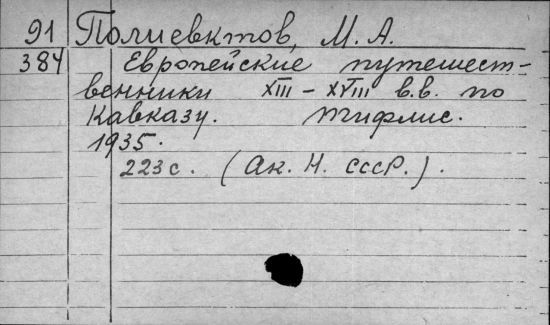 91 Полиевктов, М. А.
384 Европейские путешест-
венники XIII - XVIII в.в. по
Кавказу. Тифлис.
1935.
223 с. (Ак. Н. СССР.).